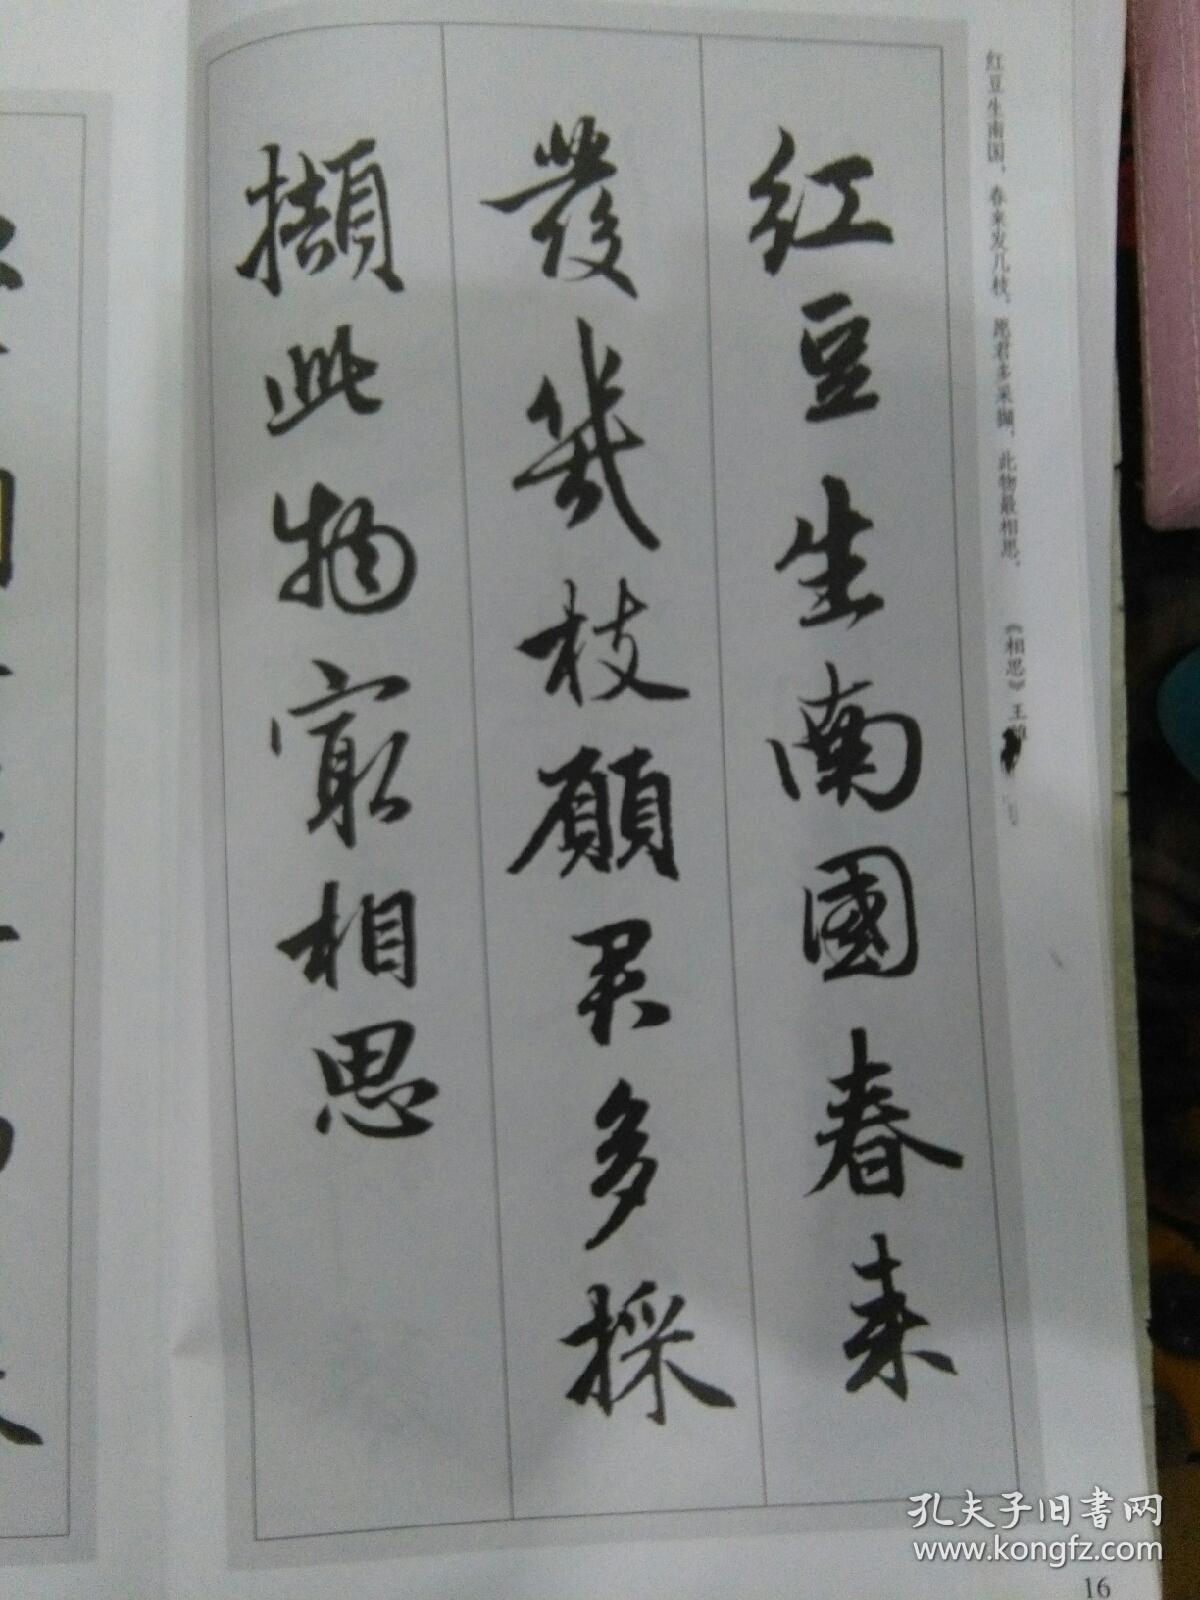 红豆生南国，春来发几枝。愿君多采撷，此物最相思。 《相思》王
红豆生南國春来
發幾枝願君多採
擷此物寂相思
孔夫子旧书网
www.kongfz.com
16